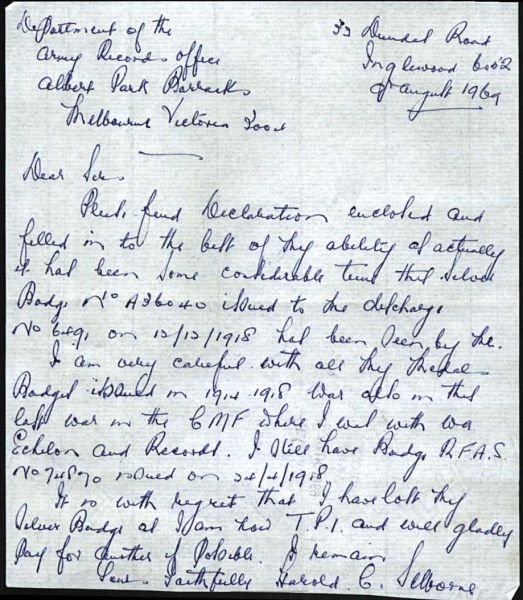 Department of the
Army Records Office
Albert Park Barracks
Melbourne Victoria 3004
33 Dundas Road
Inglewood 6052
August 1969
Dear Sir
Please find Declaration enclosed and
filled in to the best of my ability as actually
it had been some considerable time this Silver
Badge No A36040 issued to the discharge
No 6491 on 12/12/1918 had been seen by me.
I am very careful with all my medals
Badges issued in 1914 1918 War also in this
last war in the CMF where I was with WA
Echelon and Records. I still have Badge R.F.A.S.
No 74870 issued on 24/4/1918
It is with regret that I have lost my
Silver Badge as I am now T.P.I. and will gladly
Pay for another if Possible. I remain
Yours Faithfully Harold C. Selborne